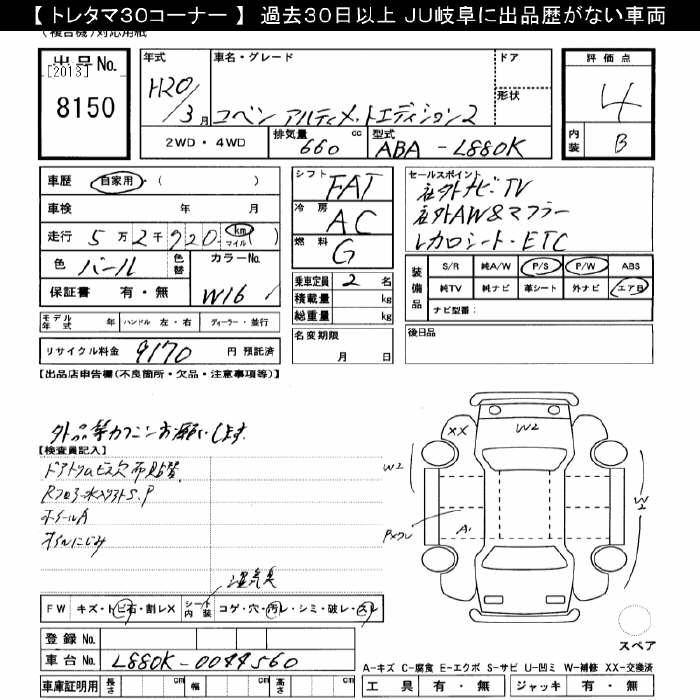 【 トレタマ30コーナー 】 過去30日以上 JU岐阜に出品歴がない車両
(複合機)対応用紙
出品No.
[2013]
8150
年式
H20/3月
車名・グレード
コペン アルティメットエディション2
ドア
形状
評価点
4
内装 B
2WD・4WD
排気量 660 cc
型式 ABA - L880K
車歴 自家用・( )
車検 年 月
走行 5万2千920 km マイル ( )
色 パール 色替
カラーNo. W16
保証書 有・無
モデル年式 年 ハンドル 左・右 ディーラー・並行
リサイクル料金 9170 円 預託済
シフト FAT
冷房 AC
燃料 G
乗車定員 2 名
積載量 kg
総重量 kg
名変期限
月 日
セールスポイント
社外ナビ・TV
社外AW&マフラー
レカロシート・ETC
装備品
S/R 純A/W P/S P/W ABS
純TV 純ナビ 革シート 外ナビ エアB
ナビ型番:
後日品
【出品店申告欄(不良箇所・欠品・注意事項等)】
【検査員記入】
ドアトリムビス欠
ホイールA
オイルにじみ
湿気臭
FW キズ・トビ石・割レX
シート内装 コゲ・穴・汚レ・シミ・破レ・スレ
登録No.
車台No. L880K-0044560
車庫証明用 長さ cm 幅 cm 高さ cm
XX
W2
W2
W2
A
スペア
A-キズ C-腐食 E-エクボ S-サビ U-凹ミ W-補修 XX-交換済
工具 有・無 ジャッキ 有・無